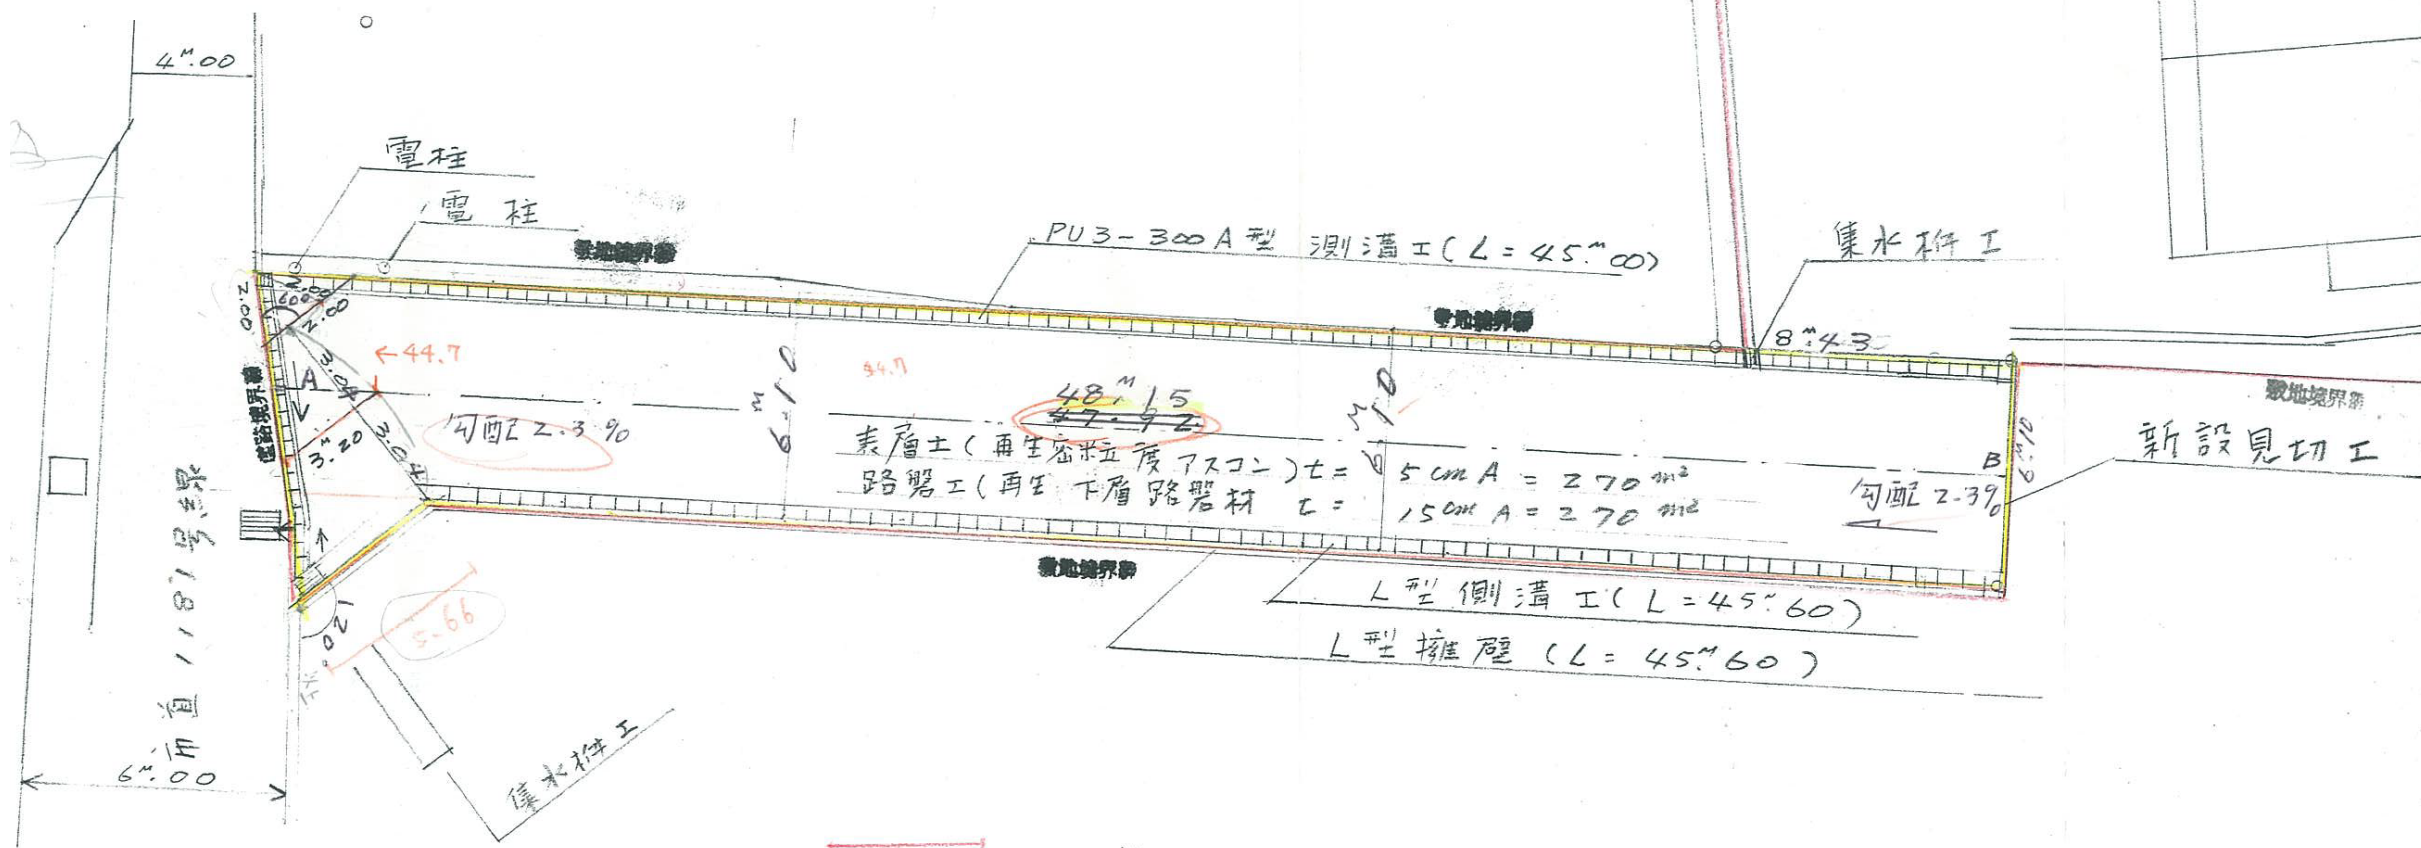 4ᵐ.00
電柱
電柱
敷地境界線
PU3-300A型 測溝工(L=45.ᵐ00)
集水桝工
敷地境界線
8ᵐ.43
2.00
60°
2.00
2.00
←44.7
3.04
A
道路境界線
3.20
3.04
勾配2.3%
6ᵐ.10
44.7
48ᵐ.15
47.92
6ᵐ.10
表層工(再生密粒度アスコン)t= 5cm A=270m²
路盤工(再生下層路盤材 t= 15cm A=270m²
敷地境界線
B
6ᵐ.10
新設見切工
勾配2.3%
敷地境界線
L型側溝工(L=45ᵐ.60)
L型擁壁(L=45ᵐ60)
120°
5.66
市道1187号線
6ᵐ.00
集水桝工